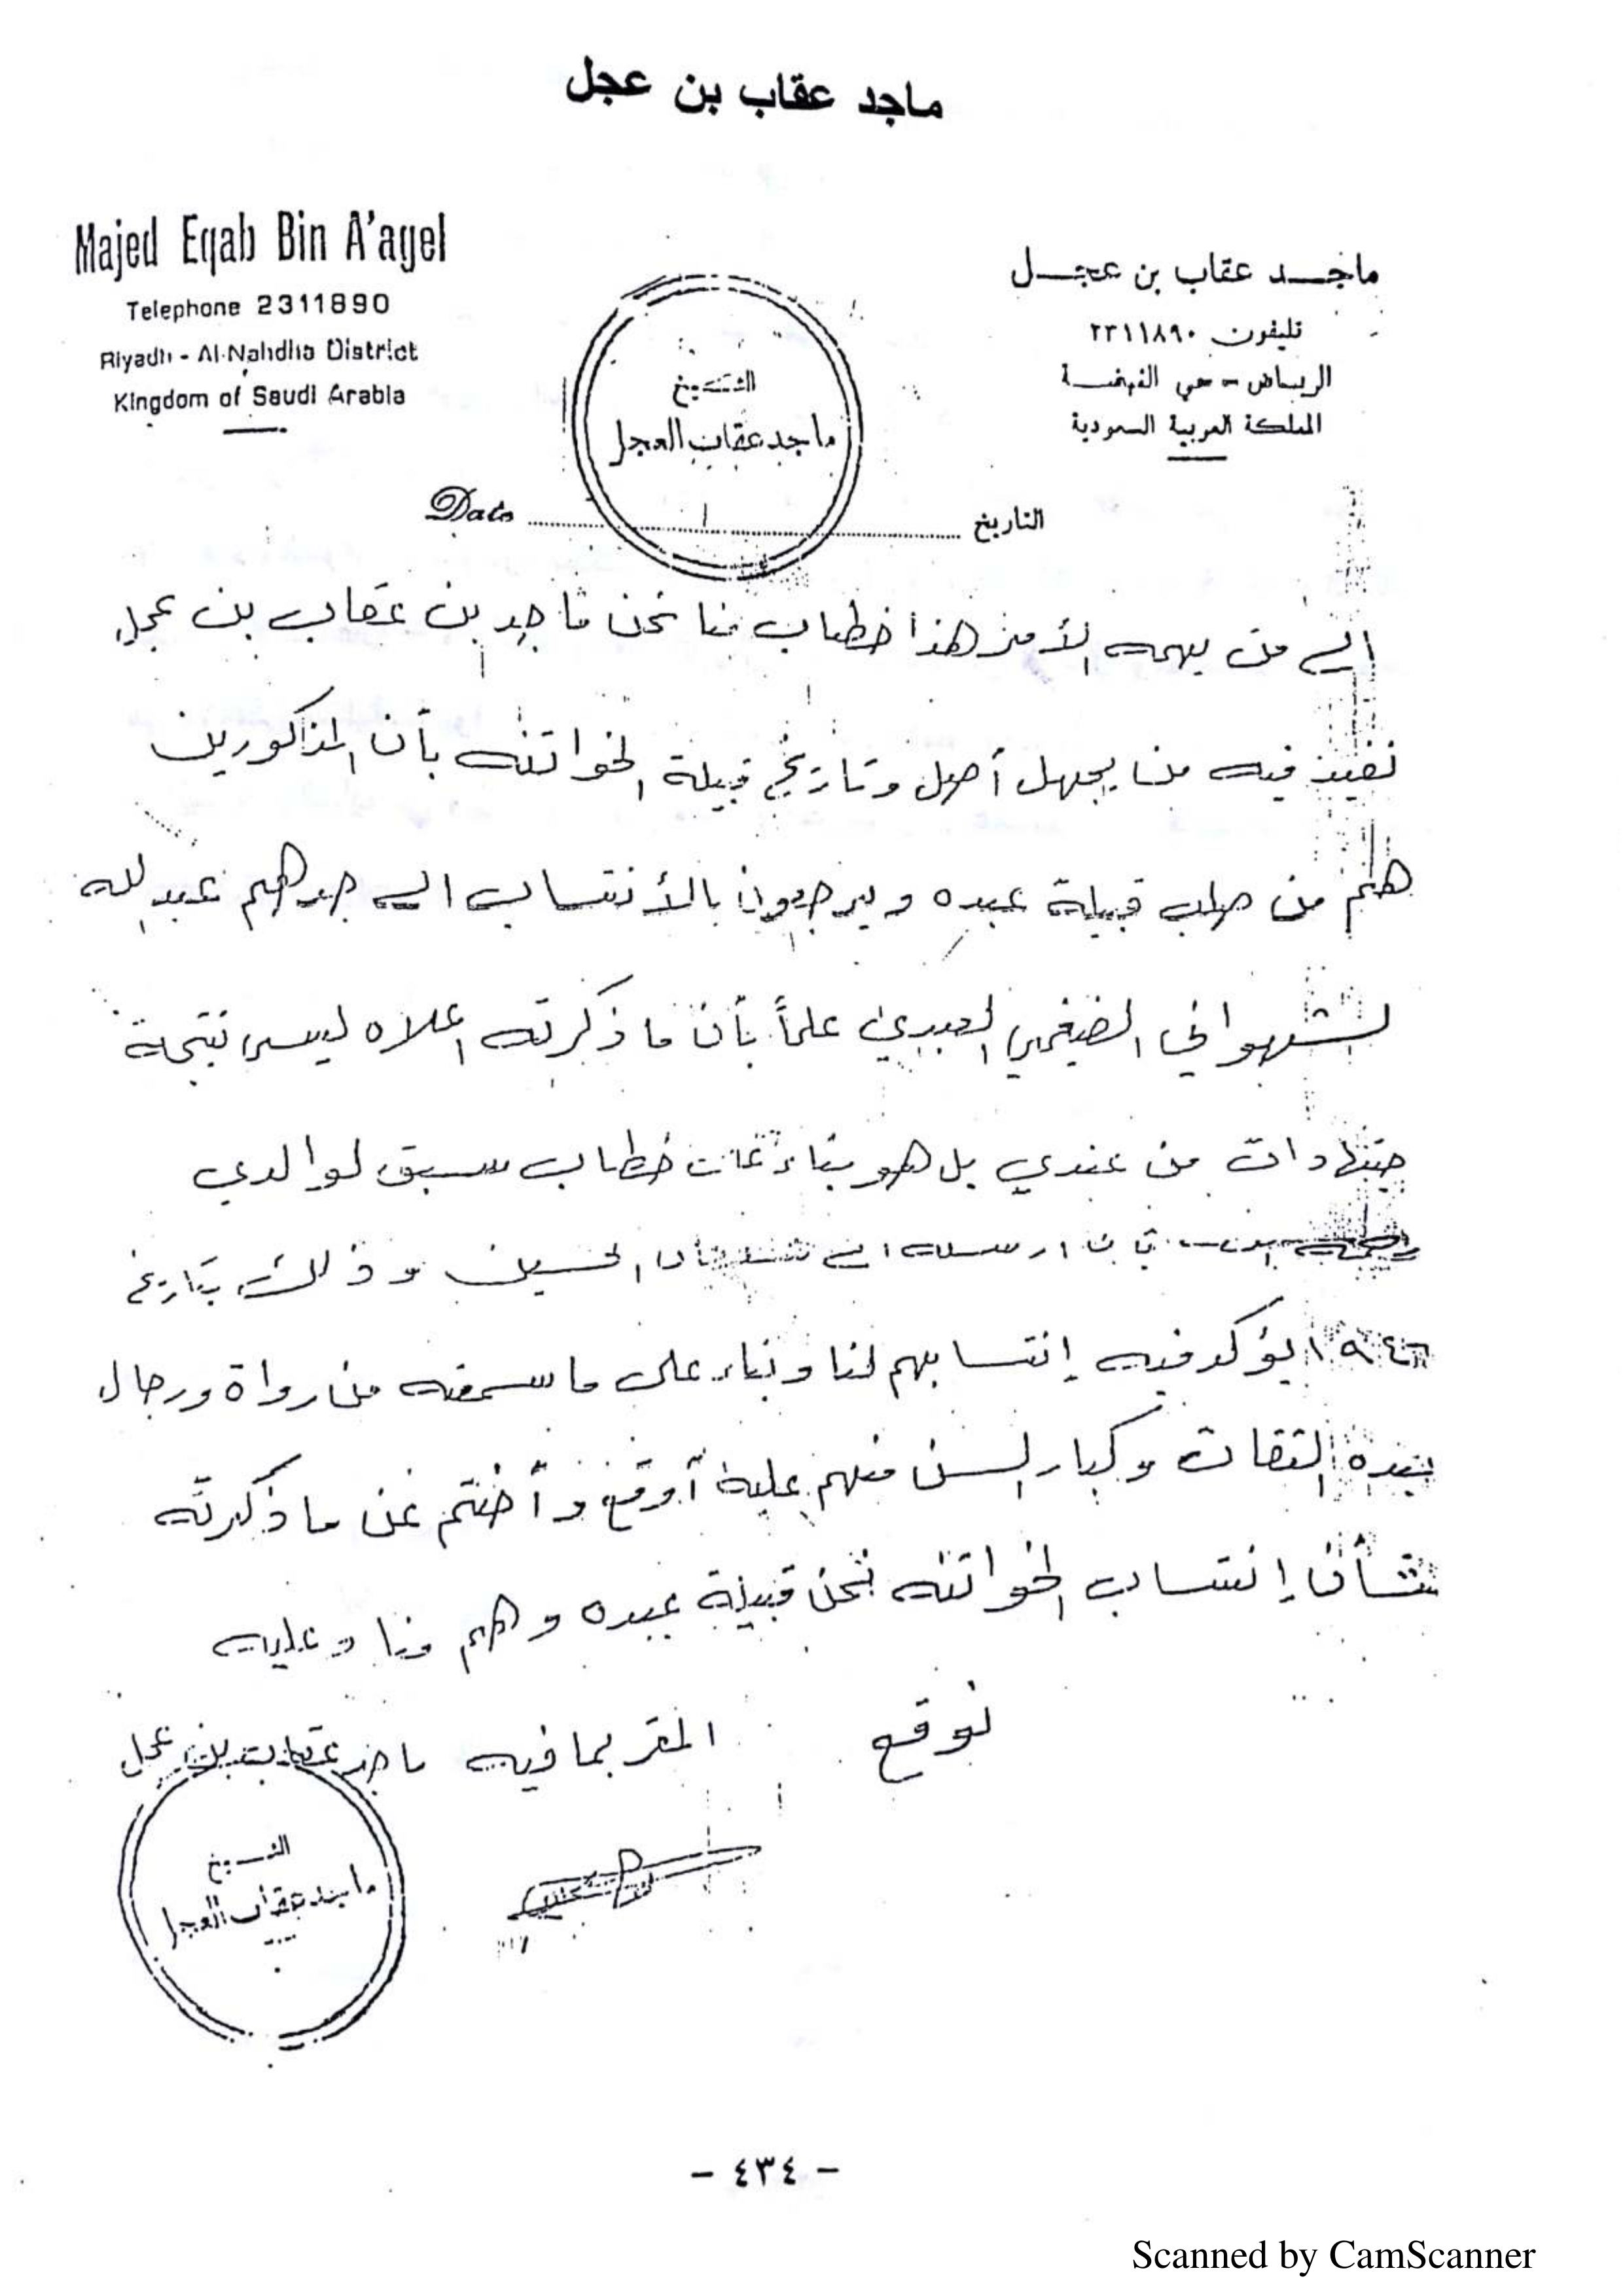 ماجد عقاب بن عجل
Majed Eqab Bin A'agel
Telephone 2311890
Riyadh - Al-Nahdha District
Kingdom of Saudi Arabia
ماجد عقاب بن عجل
تليفون ٢٣١١٨٩٠
الرياض - حي النهضة
المملكة العربية السعودية
الشيخ
ماجد عقاب العجل
Date
التاريخ
الى من يهمه الأمر هذا خطاب منا نحن ماجد بن عقاب بن عجل
نفيد فيه من يجهل أصل وتاريخ قبيلة الخواتنه بأن المذكورين
هم من صلب قبيلة عبده ويرجعون بالأنتساب الى جدهم عبدالله
الشهواني الضيغمي العبيدي علماً بأن ما ذكرته اعلاه ليس نتيجة
جتهادات من عندي بل هو بناء خطاب سبق لوالدي
ارسله الى الحسين وذلك بتاريخ
يؤكد فيه إنتسابهم لنا وبناء على ما سمعته من رواة ورجال
عبده الثقات وكبار السن منهم عليه أوقع وأختم عن ما ذكرته
بشأن إنتساب الخواتنه نحن قبيلة عبده وهم منا وعليه
نوقع المقر بما فيه ماجد عقاب بن عجل
الشيخ
ماجد عقاب العجل
- ٤٣٤ -
Scanned by CamScanner